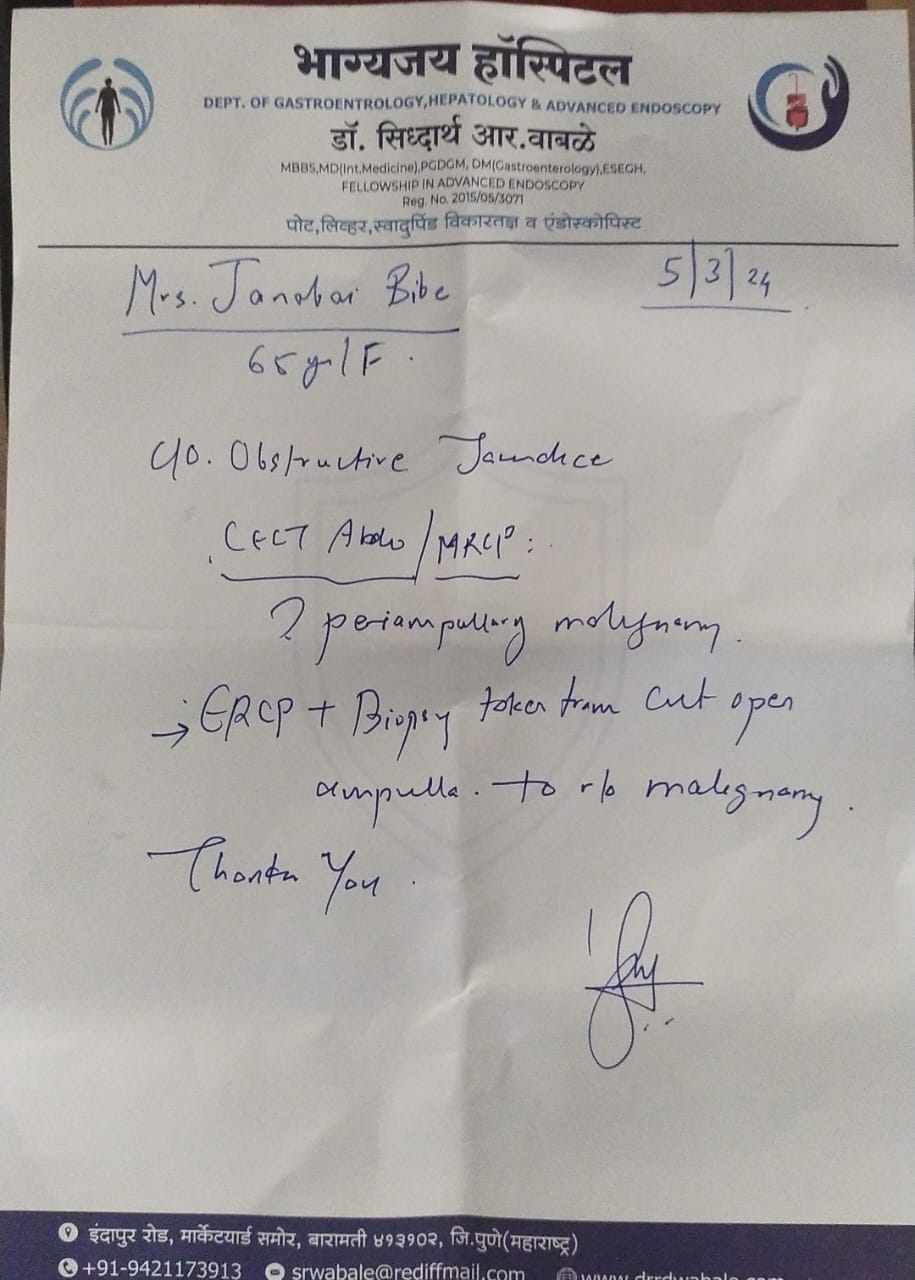 भाग्यजय हॉस्पिटल
DEPT. OF GASTROENTROLOGY,HEPATOLOGY & ADVANCED ENDOSCOPY
डॉ. सिध्दार्थ आर.वाबळे
MBBS,MD(Int,Medicine),PGDGM, DM(Gastroenterology),ESEGH,
FELLOWSHIP IN ADVANCED ENDOSCOPY
Reg. No. 2015/05/3071
पोट,लिव्हर,स्वादुपिंड विकारतज्ञ व एंडोस्कोपिस्ट
5/3/24
Mrs. Janabai Bibe
65 yr/F.
c/o. Obstructive Jaundice
CECT Abdo/MRCP:
? periampullary malignancy.
→ ERCP + Biopsy taken from cut open
ampulla. to r/o malignancy.
Thank You.
इंदापुर रोड, मार्केटयार्ड समोर, बारामती ४१३१०२, जि.पुणे(महाराष्ट्र)
+91-9421173913 srwabale@rediffmail.com